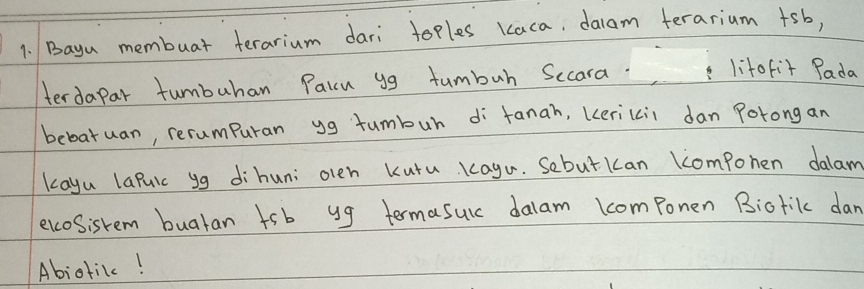 1. Bayu membuat terarium dari toples kaca. dalam terarium tsb,
terdapat tumbuhan Paku yg tumbuh Secara litofit Pada
bebatuan, rerumPutan yg tumbuh di tanah, kerikil dan Potongan
kayu laPuk yg dihuni oleh kutu kayu. Sebutkan komPonen dalam
ekoSistem buatan tsb yg termasuk dalam komPonen Biotik dan
Abiotik !